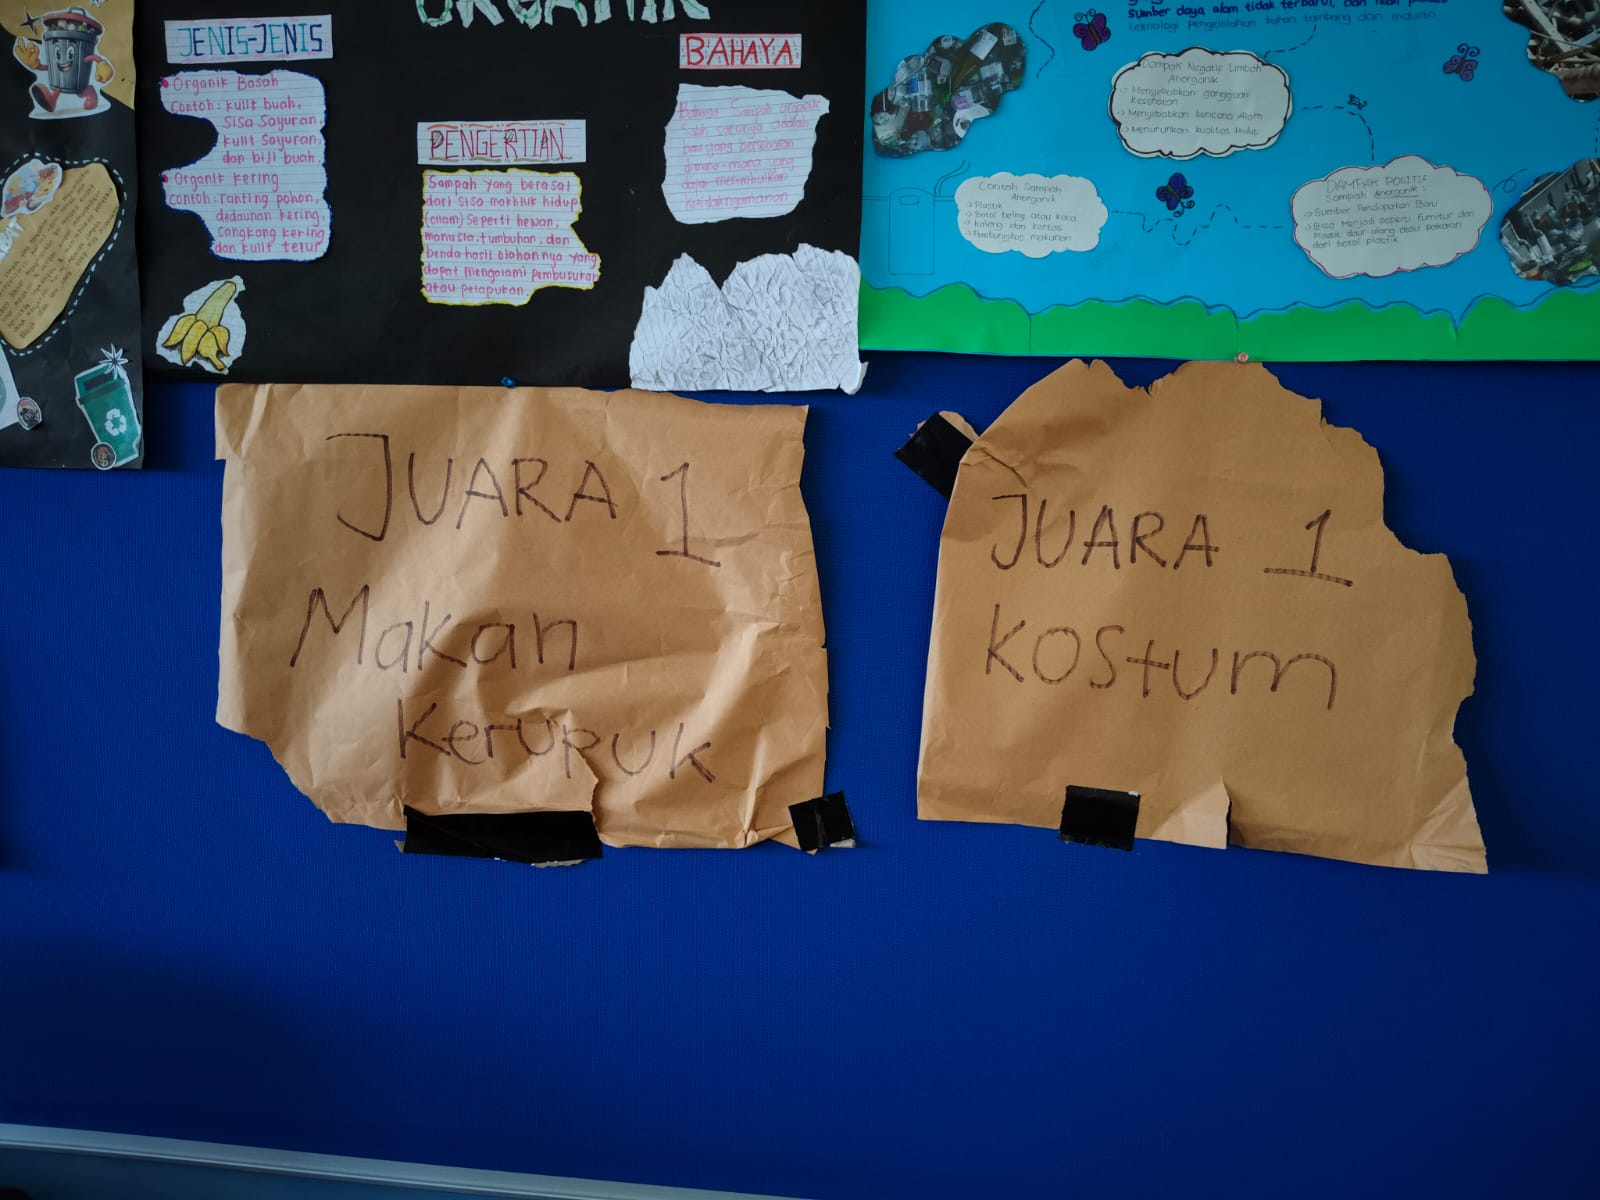 ORGANIK
JENIS-JENIS
Organik Basah
Contoh: kulit buah,
sisa sayuran,
kulit sayuran,
dan biji buah.
Organik kering
contoh: ranting pohon,
dedaunan kering,
cangkang kering
dan kulit telur
PENGERTIAN
Sampah yang berasal
dari sisa makhluk hidup
(alam) seperti hewan,
manusia, tumbuhan, dan
benda hasil olahannya yang
dapat mengalami pembusukan
atau pelapukan.
BAHAYA
Bahaya Sampah organik
Salah satunya adalah
bau yang bertebaran
dimana-mana yang
dapat menimbulkan
ketidaknyamanan
Sumber daya alam tidak terbarui, dan hasil proses
teknologi pengelolahan bahan tambang dan industri
Dampak Negatif Limbah
Anorganik
-> Menyebabkan gangguan
kesehatan
-> Menyebabkan Bencana Alam
-> Menurunkan kualitas Hidup
Contoh Sampah
Anorganik
-> Plastik
-> Botol beling atau kaca
-> kaleng dan kertas
-> Pembungkus makanan
DAMPAK POSITIF
Sampah Anorganik :
-> Sumber Pendapatan Baru
-> Bisa Menjadi seperti furnitur dari
Plastik daur ulang atau pakaian
dari botol plastik
JUARA 1
Makan
Kerupuk
JUARA 1
KOStum